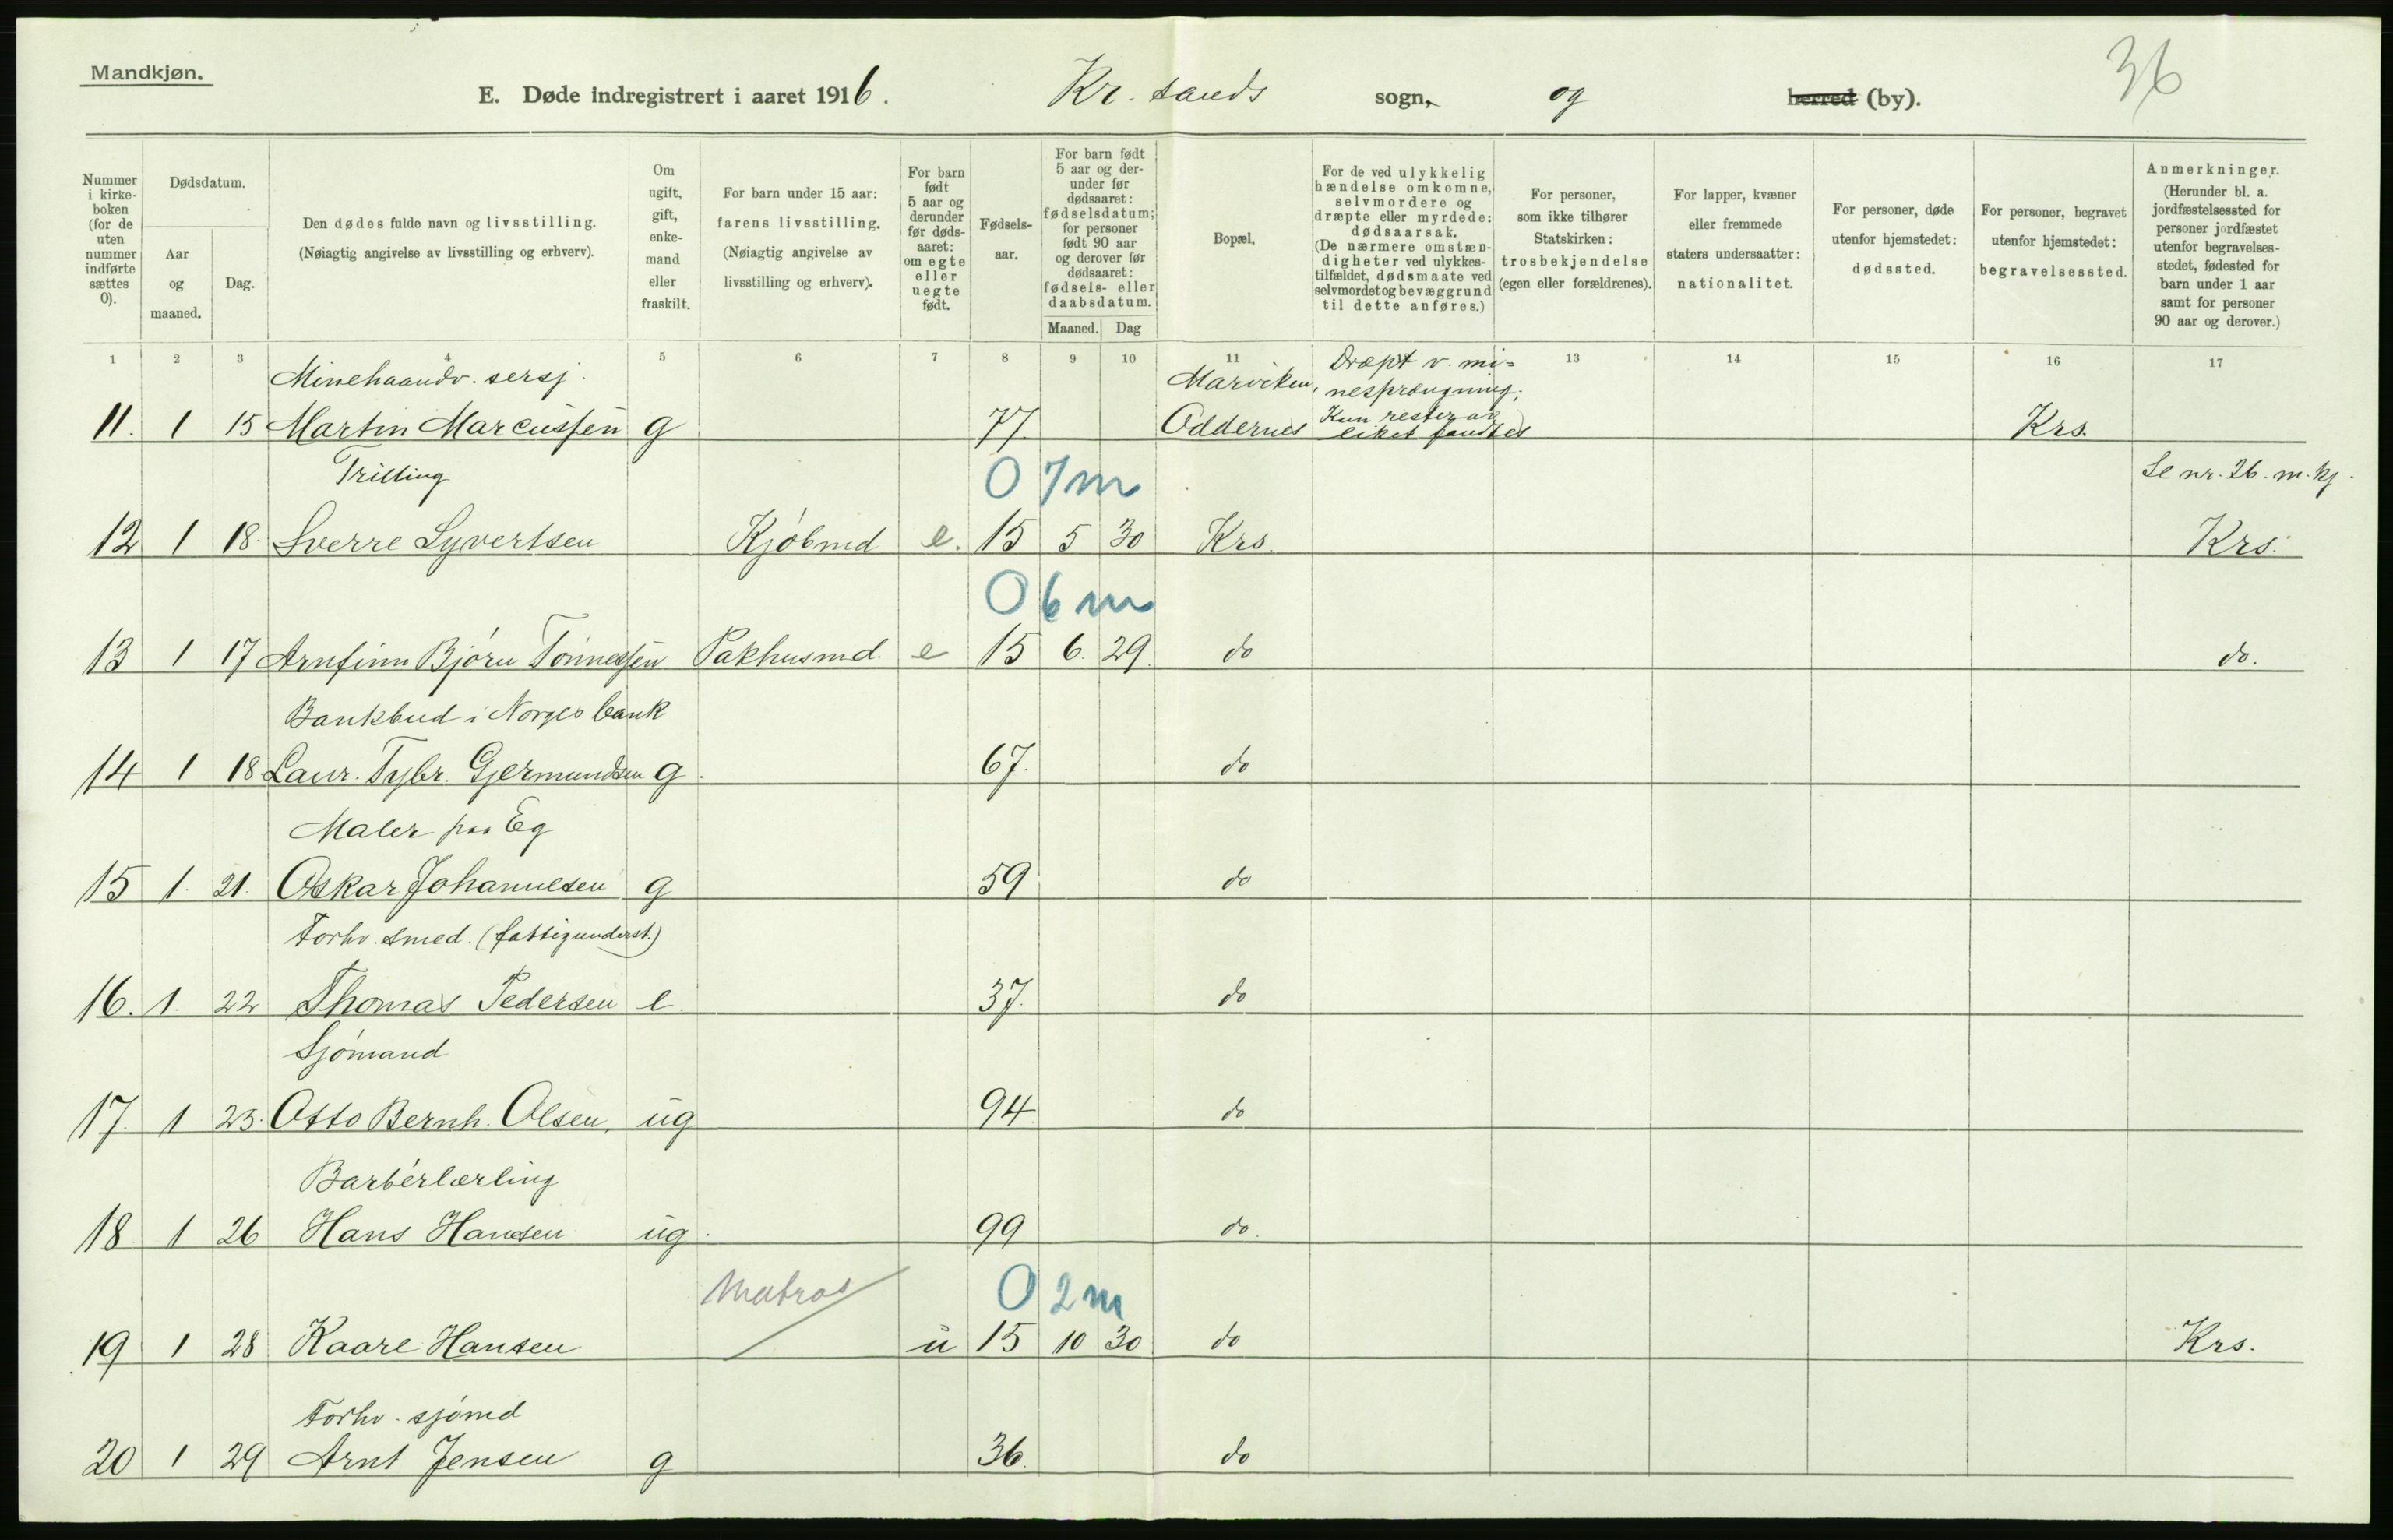 Mandkjøn.
36
E. Døde indregistrert i aaret 1916. Kr.sands sogn, og herred (by).
Nummer i kirke-boken (for de uten nummer indførte sættes 0).
Dødsdatum.
Aar og maaned.
Dag.
Den dødes fulde navn og livsstilling. (Nøiagtig angivelse av livsstilling og erhverv).
Om ugift, gift, enke-mand eller fraskilt.
For barn under 15 aar: farens livsstilling. (Nøiagtig angivelse av livsstilling og erhverv).
For barn født 5 aar og derunder før døds-aaret: om egte eller uegte født.
Fødsels-aar.
For barn født 5 aar og der-under før dødsaaret: fødselsdatum; for personer født 90 aar og derover før dødsaaret: fødsels- eller daabsdatum.
Maaned. Dag
Bopæl.
For de ved ulykkelig hændelse omkomne, selvmordere og dræpte eller myrdede: dødsaarsak. (De nærmere omstæn-digheter ved ulykkes-tilfældet, dødsmaate ved selvmordet og bevæggrund til dette anføres.)
For personer, som ikke tilhører Statskirken: trosbekjendelse (egen eller forældrenes).
For lapper, kvæner eller fremmede staters undersaatter: nationalitet.
For personer, døde utenfor hjemstedet: dødssted.
For personer, begravet utenfor hjemstedet: begravelsessted.
Anmerkninger. (Herunder bl. a. jordfæstelsessted for personer jordfæstet utenfor begravelses-stedet, fødested for barn under 1 aar samt for personer 90 aar og derover.)
1 2 3 4 5 6 7 8 9 10 11 12 13 14 15 16 17
Minehaandv. sersj. Marviken, Dræpt v. mi=nesprængning;
11. 1 15 Martin Marcussen g 77. Oddernes Kun rester av liket fandtes Krs.
Trilling 0 7m Se nr. 26. m. kj.
12 1 18. Sverre Syvertsen Kjøbmd e. 15 5 30 Krs. Krs.
0 6m
13 1 17 Arnfinn Bjørn Tønnessen Pakhusmd. e 15 6. 29. do do.
Bankbud i Norges bank
14 1 18 Laur. Tybr. Gjermundsen g. 67. do
Maler paa Eg
15 1. 21. Oskar Johannesen g 59 do
Forhv. smed. (fattigunderst.)
16. 1. 22 Thomas Pedersen e. 37. do
Sjømand
17. 1 23. Otto Bernh. Olsen, ug 94. do
Barbérlærling
18 1 26 Hans Hansen ug. 99 do.
Matros 0 2m
19 1 28 Kaare Hansen u 15 10 30 do Krs.
Forhv. sjømd
20 1 29 Arnt Jensen g 36. do